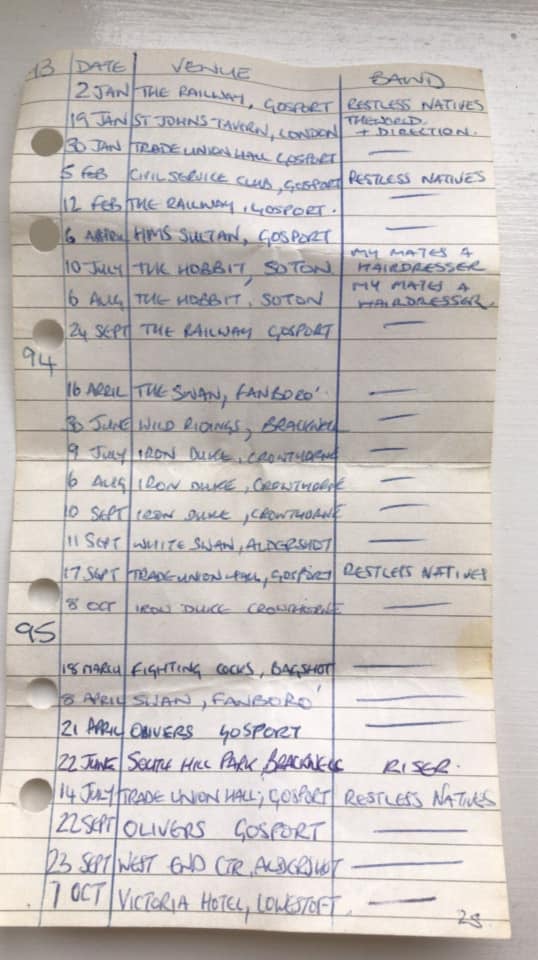 93 DATE VENUE BAND
2 JAN THE RAILWAY, GOSPORT RESTLESS NATIVES
19 JAN ST JOHNS TAVERN, LONDON THEWORLD. + DIRECTION.
30 JAN TRADE UNION HALL GOSPORT —
5 FEB CIVIL SERVICE CLUB, GOSPORT RESTLESS NATIVES
12 FEB THE RAILWAY, GOSPORT. —
6 APRIL HMS SULTAN, GOSPORT —
10 JULY THE HOBBIT, SOTON MY MATES A HAIRDRESSER
6 AUG THE HOBBIT, SOTON MY MATES A HAIRDRESSER.
24 SEPT THE RAILWAY GOSPORT —
94
16 APRIL THE SWAN, FANBORO' —
30 JUNE WILD RIDINGS, BRACKNELL —
9 JULY IRON DUKE, CROWTHORNE —
6 AUG IRON DUKE, CROWTHORNE —
10 SEPT IRON DUKE, CROWTHORNE —
11 SEPT WHITE SWAN, ALDERSHOT —
17 SEPT TRADE UNION HALL, GOSPORT RESTLESS NATIVES
8 OCT IRON DUKE CROWTHORNE —
95
18 MARCH FIGHTING COCKS, BAGSHOT —
8 APRIL SWAN, FANBORO' —
21 APRIL OLIVERS GOSPORT —
22 JUNE SOUTH HILL PARK, BRACKNELL RISER.
14 JULY TRADE UNION HALL, GOSPORT RESTLESS NATIVES
22 SEPT OLIVERS GOSPORT —
23 SEPT WEST END CTR, ALDERSHOT —
7 OCT VICTORIA HOTEL, LOWESTOFT. —